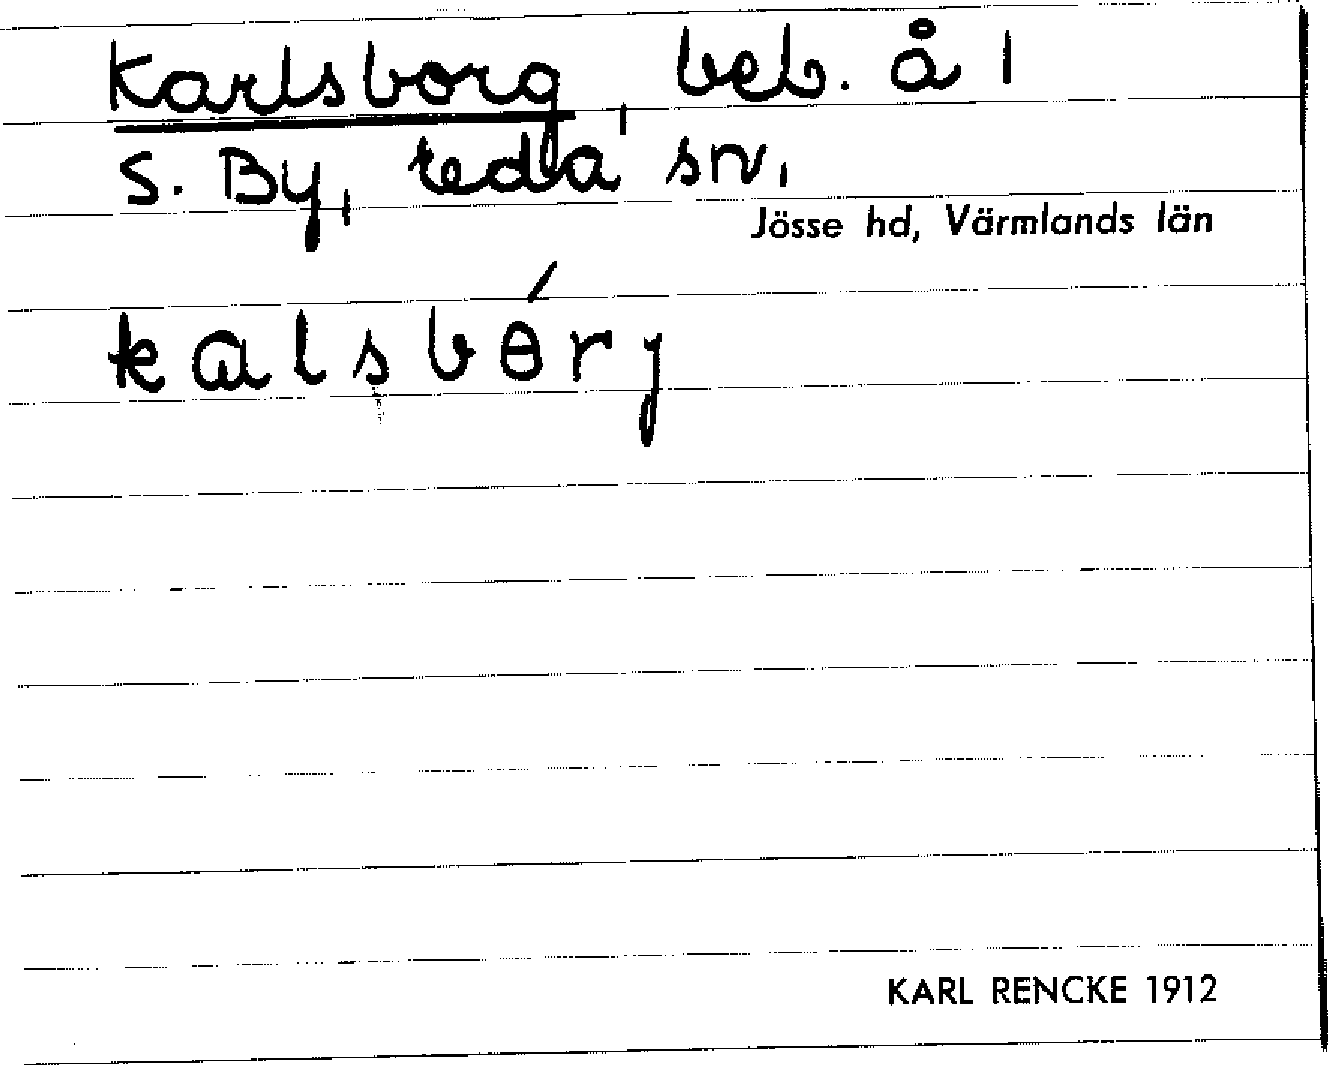 Karlsborg, beb. å 1
S. By, Eda sn,
Jösse hd, Värmlands län
kalsbɵ́rj
KARL RENCKE 1912